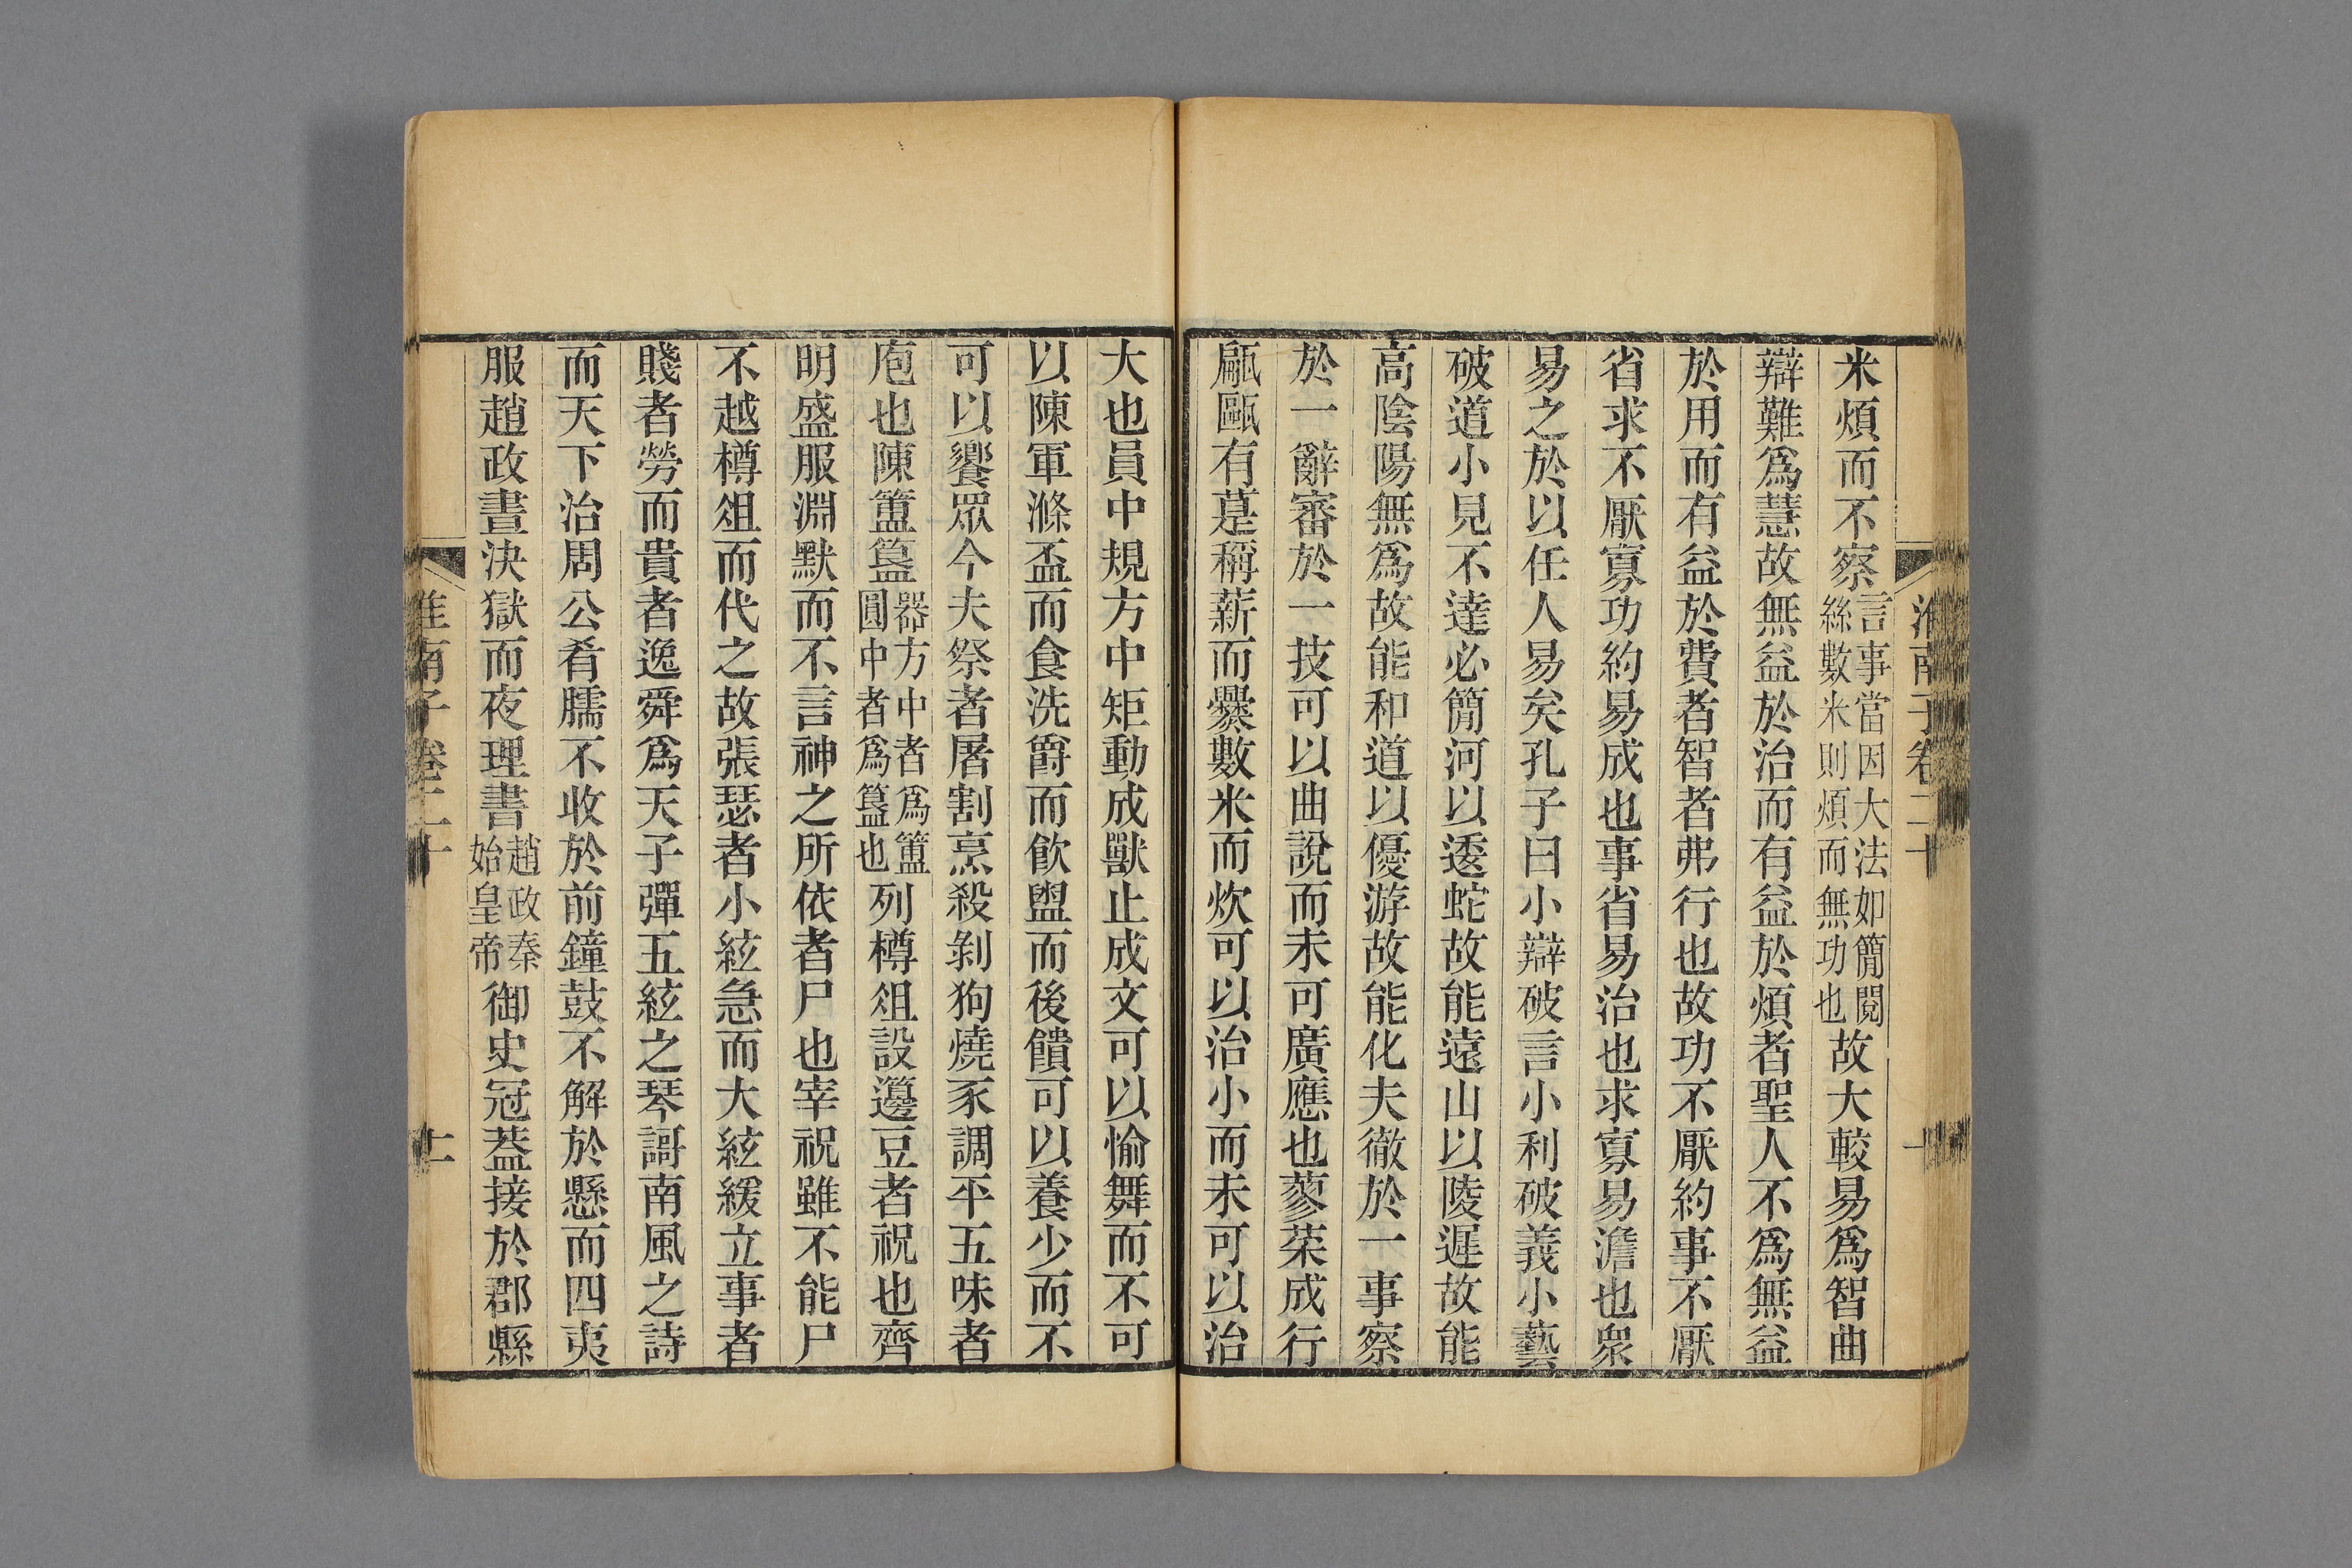 米煩而不察言事當因大法如簡閱絲數米則煩而無功也故大較易爲智曲
辯難爲慧故無益於治而有益於煩者聖人不爲無益
於用而有益於費者智者弗行也故功不厭約事不厭
省求不厭寡功約易成也事省易治也求寡易澹也衆
易之於以任人易矣孔子曰小辯破言小利破義小藝
破道小見不達必簡河以逶蛇故能遠山以陵遲故能
高陰陽無爲故能和道以優游故能化夫徹於一事察
於一辭審於一技可以曲說而未可廣應也蓼菜成行
甂甌有𦳊稱薪而爨數米而炊可以治小而未可以治
大也員中規方中矩動成獸止成文可以愉舞而不可
以陳軍滌盃而食洗爵而飮盥而後饋可以養少而不
可以饗眾今夫祭者屠割烹殺剝狗燒豕調平五味者
庖也陳簠簋器方中者爲簠圓中者爲簋也列樽俎設籩豆者祝也齊
明盛服淵默而不言神之所依者尸也宰祝雖不能尸
不越樽俎而代之故張瑟者小絃急而大絃緩立事者
賤者勞而貴者逸舜爲天子彈五絃之琴謌南風之詩
而天下治周公肴臑不收於前鐘鼓不解於懸而四夷
服趙政晝決獄而夜理書趙政秦始皇帝御史冠蓋接於郡縣
淮南子卷二十